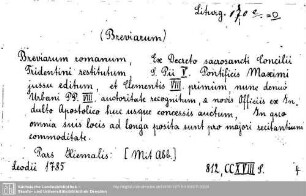 Liturg. 170 e = 0
(Breviarum)
Breviarum romanum, Ex Decreto sacrosancti Concilii
Tridentini restitutum S. Pii V. Pontificis Maximi
jussu editum, et Clementis VIII. primum nunc denuo
Urbani PP. VIII. auctoritate recognitum, c novis Officiis ex In_
dulto Apostolico huc usque concessis auctum, In quo
omnia suis locis ad longa posita sunt pro majori recitantium
commoditate.
Pars Hiemalis: [Mit Abb.]
Leodii 1785
812, CCXVIII S.